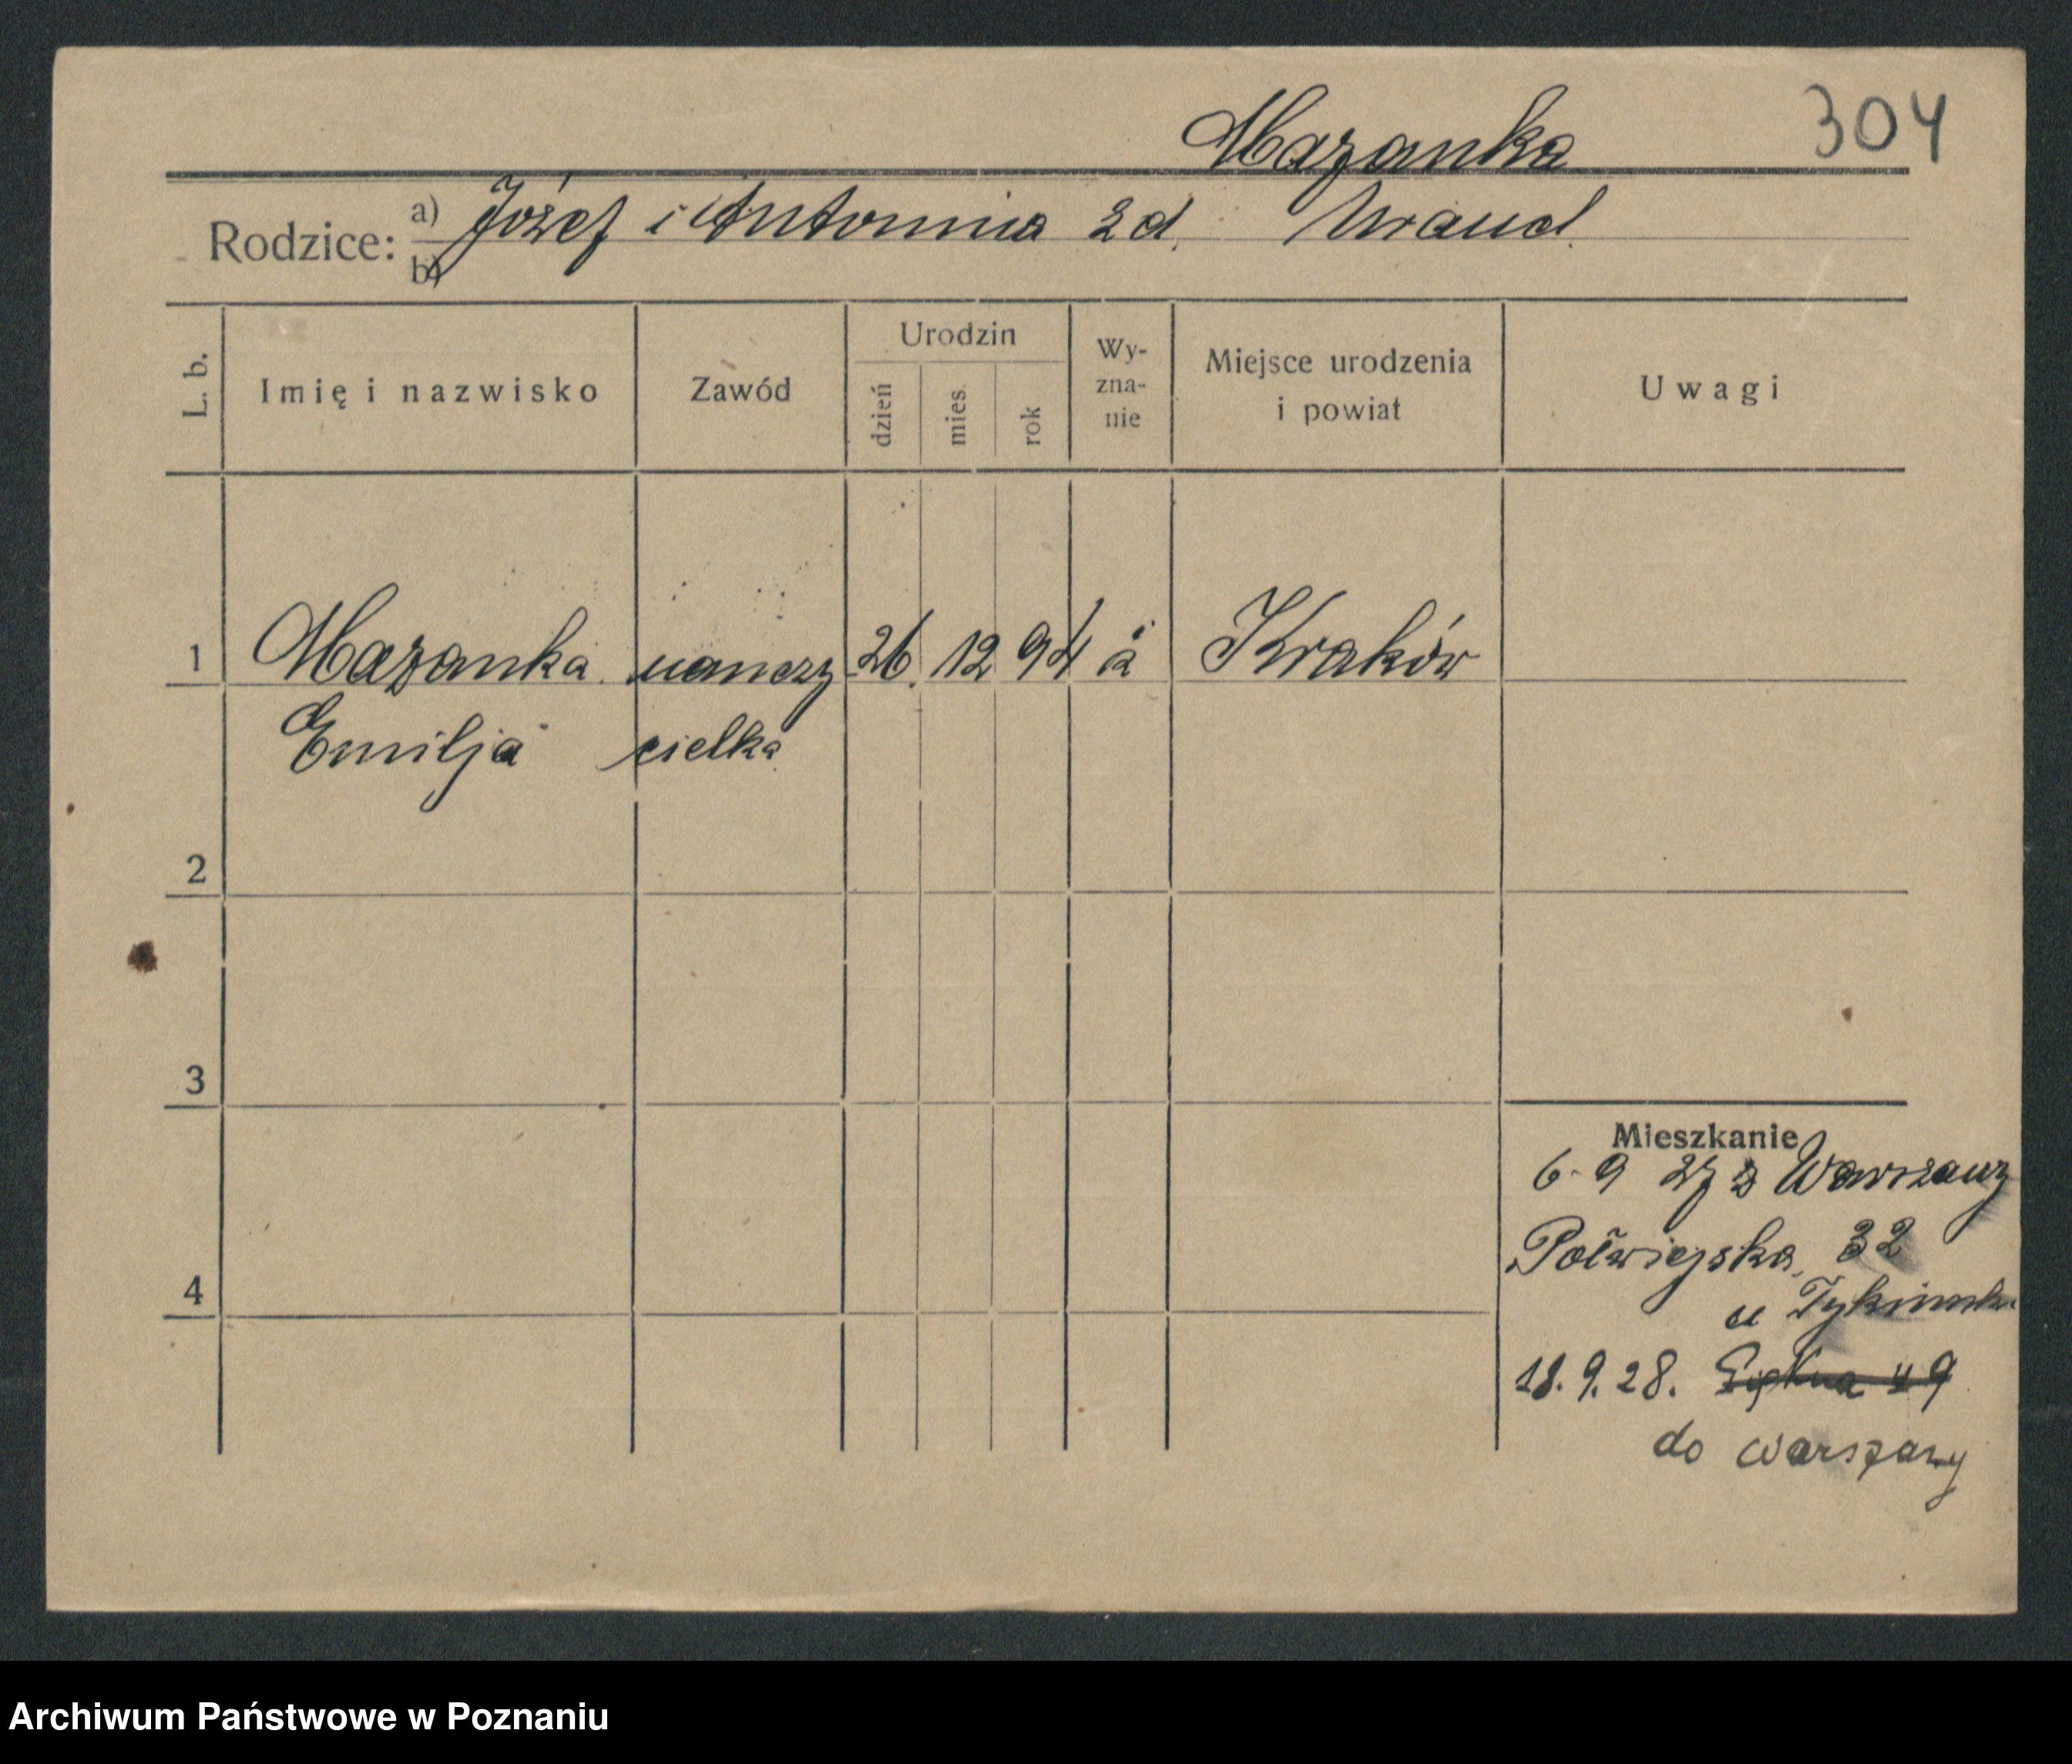 304
Mazanka
Rodzice: a) Józef i Antonina zd.
b)
L. b.
Imię i nazwisko
Zawód
Urodzin
dzień
mies.
rok
Wy-
zna-
nie
Miejsce urodzenia
i powiat
Uwagi
1 Mazanka nauczy 26 12 94 Kraków
Emilja cielka
2
3
4
Mieszkanie
6 9 27 z Warszawy
Półwiejska 32
u
18.9.28. Piękna 49
do Warszawy
Archiwum Państwowe w Poznaniu